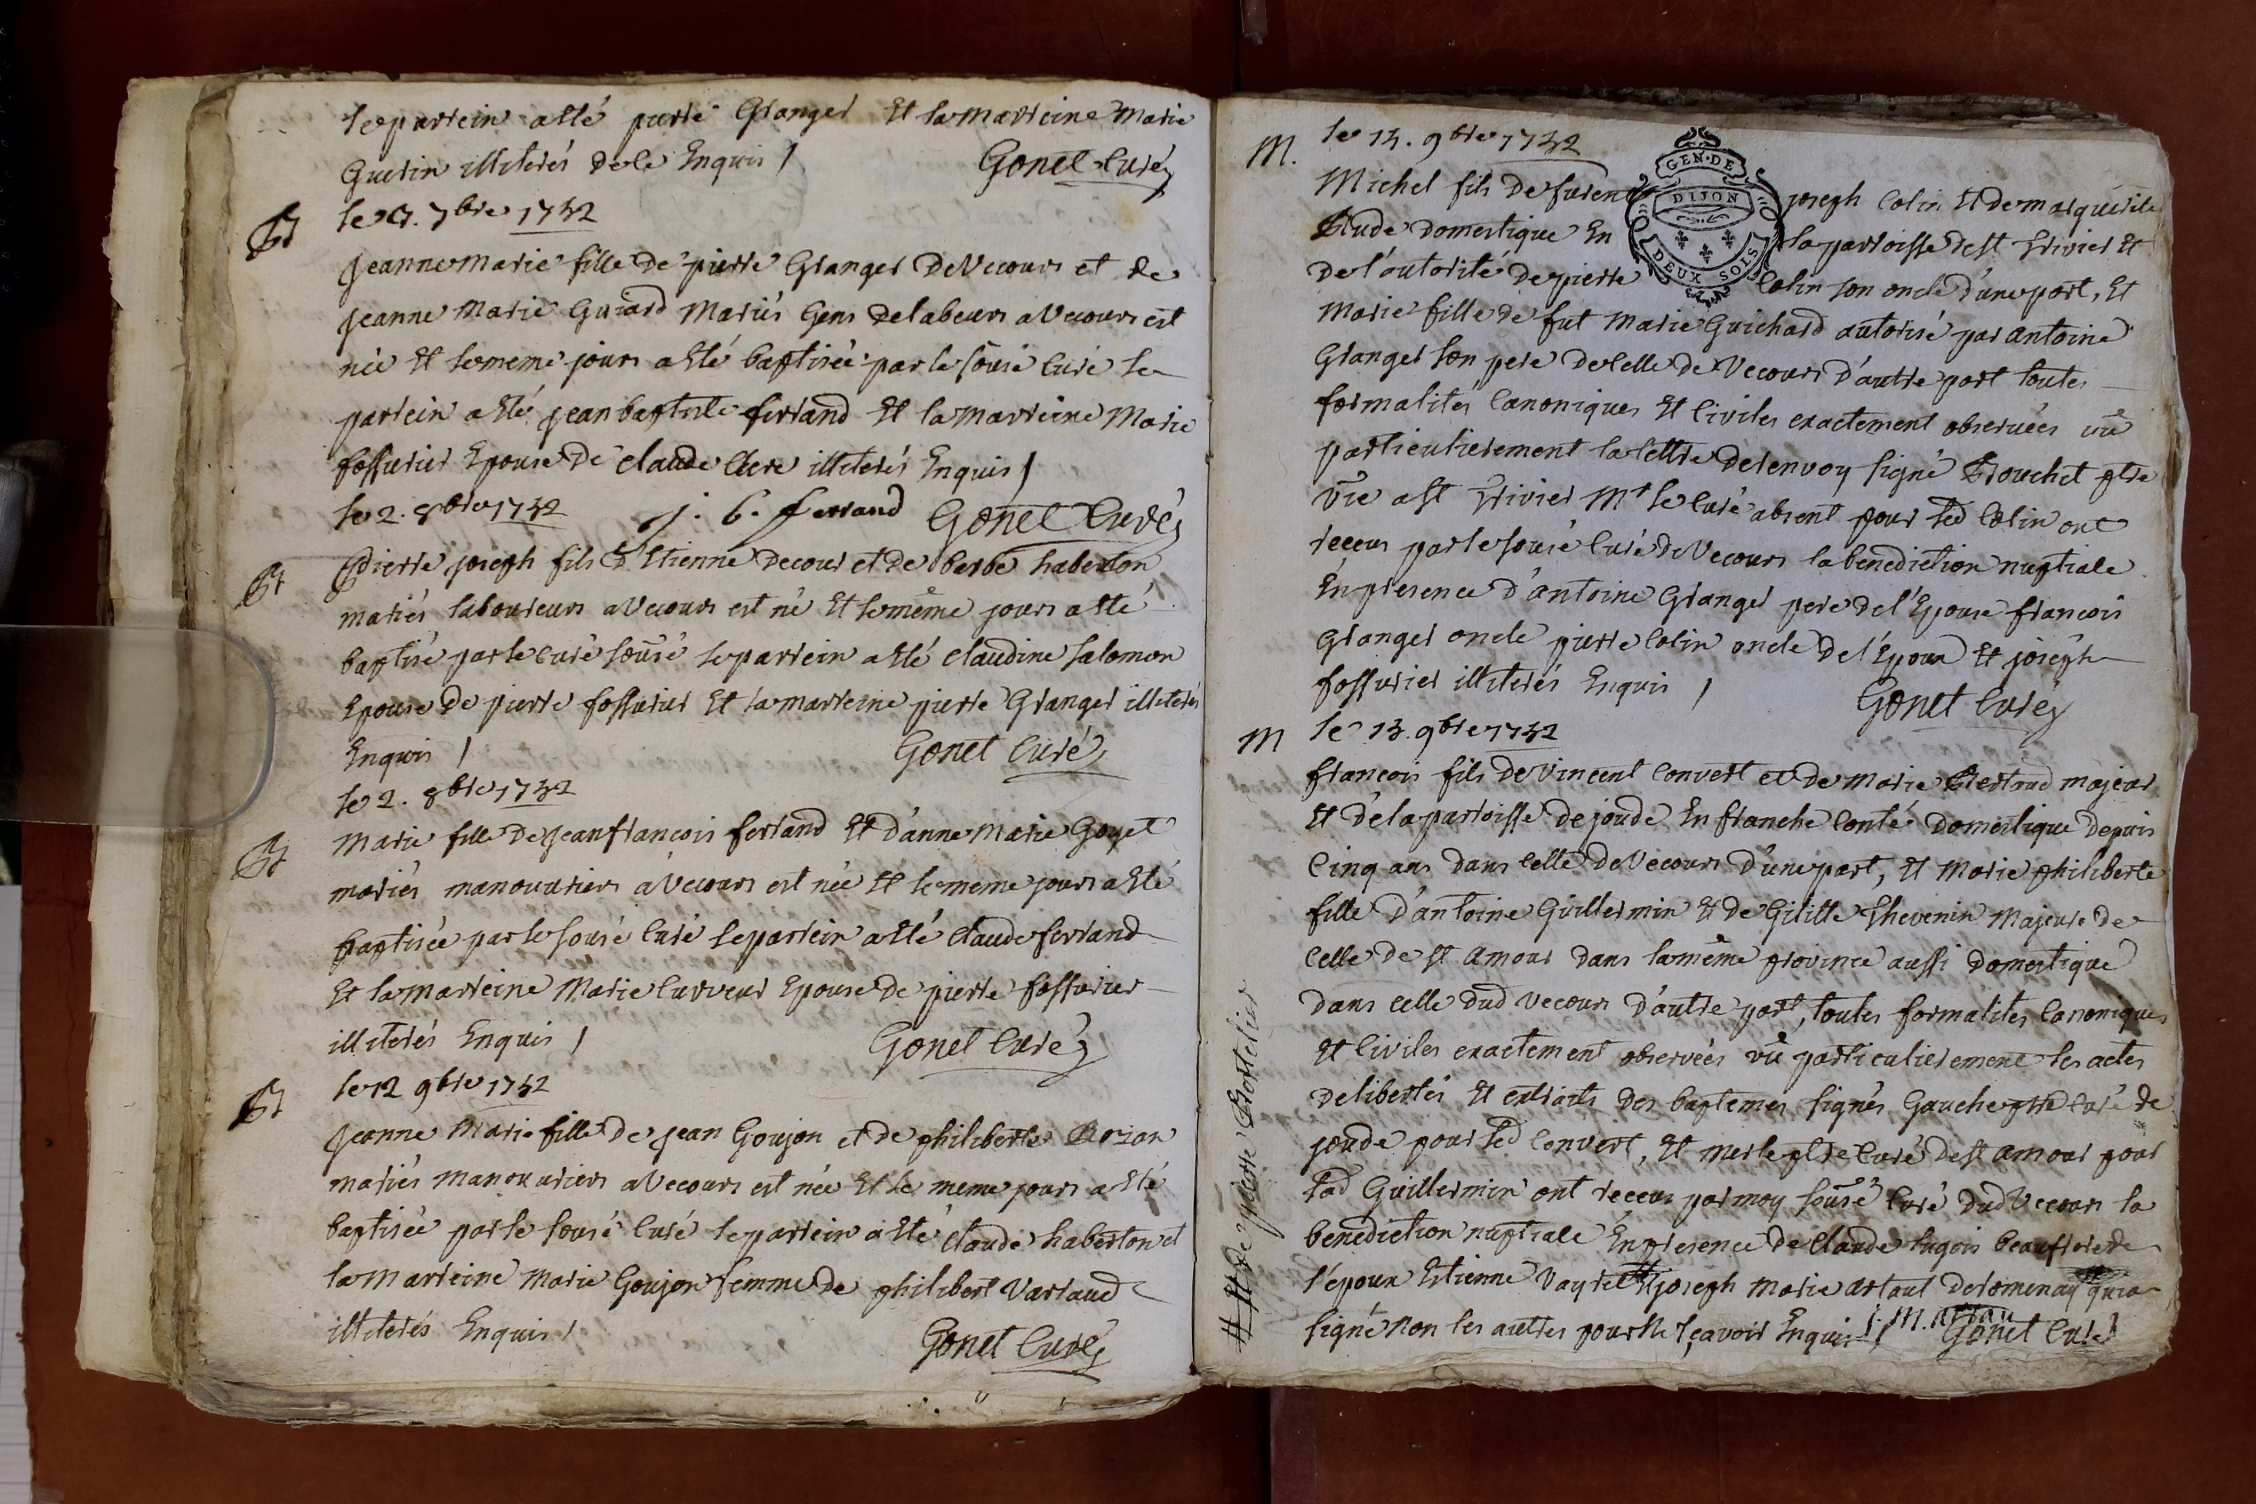 le parrein a Eté pierre Granger Et la marreine marie
Guerin illiterés de ce Enquis /
Gonet Curé
Bt
le 7bre 1752
jeanne marie fille de pierre Granger de Vecours et de
jeanne marie Guiard mariés Gens de labeurs a Vecours est
née Et le meme jours a Eté baptisée par le sousé Curé le
parrein a Eté jean baptiste ferrand Et la marreine marie
fossurier Epouse de claude Clere illiterés Enquis /
j. b. ferrand Gonet Curé
le 2. 8bre 1752
Bt
pierre joseph fils d'Etienne decour et de barbe haberton
mariés laboureurs a Vecours est né Et le même jours a Eté
baptisé par le Curé sousé le parrein a Eté claudine salomon
Epouse de pierre fossurier Et la marreine pierre Granger illiterés
Enquis / Gonet Curé
le 2. 8bre 1752
Bt
marie fille de jean francois ferrand Et d'anne marie Goyet
mariés manouvriers à Vecours est née Et le meme jours a Eté
baptisée par le sousé Curé le parrein a Eté claude ferrand
Et la marreine marie Curveur Epouse de pierre fossurier
illiterés Enquis / Gonet Curé
le 12 9bre 1752
Bt
jeanne marie fille de jean Goujon et de philiberte
mariés manouvriers a Vecours est née Et le meme jours a Eté
baptisée par le sousé Curé le parrein a Eté claude haberton et
la marreine marie Goujon femme de philibert Vartaud
illiterés Enquis / Gonet Curé
M.
le 13. 9bre 1752
GEN. DE
DIJON
DEUX SOLS
Michel fils de furent joseph Colin Et de marguerite
Bude domestique En la parroisse de St trivier Et
de l'autorité de pierre Colin son oncle d'une part, Et
marie fille de fut marie Guichard autorisé par antoine
Granger son pere de celle de Vecours d'autre part toutes
formalites Canoniques Et Civiles exactement observées vû
particulierement la lettre de renvoy signé Brouchet ptre
vic a St trivier Mr le Curé absent pour led Colin ont
receus par le sousé Curé de Vecours la benediction nuptiale
En presence d'antoine Granger pere de l'Epouse francois
Granger oncle pierre Colin oncle de l'Epoux Et joseph
fossurier illiterés Enquis / Gonet Curé
M
le 13. 9bre 1752
francois fils de vincent Convert et de marie Bertrand majeur
Et de la parroisse de joude En franche Conté domestique depuis
Cinq ans dans celle de Vecours d'une part, Et marie philiberte
fille d'antoine Guillermin Et de thevenin majeure de
Celle de St amour dans la même province aussi domestique
dans celle dud vecours d'autre part, toutes formalites Canoniques
Et Civiles exactement observées vû particulierement les actes
de libertés Et extraits des baptemes signés Gauche ptre Curé de
joude pour led Convert, Et merle ptre Curé de St amour pour
lad Guillermin ont receus par moy sousé Curé dud Vecours la
benediction nuptiale En presence de Claude beaufrere de
l'epoux Estienne Vayret # joseph marie artaut de romenay qui a
signé non les autres pour ne sçavoir Enquis / j. M. artau Gonet Curé
# Et de pierre